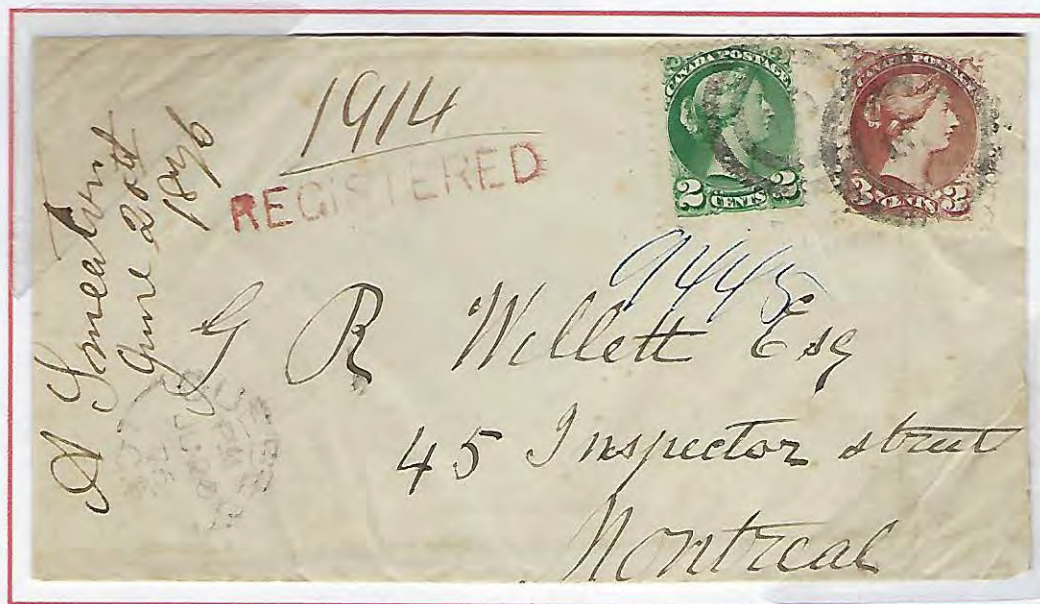 A Smeaton
June 20th
1876
1914
REGISTERED
CANADA POSTAGE
2 CENTS 2
CANADA POSTAGE
3 CENTS 3
9445
G R Willett Esq
45 Inspector street
Montreal